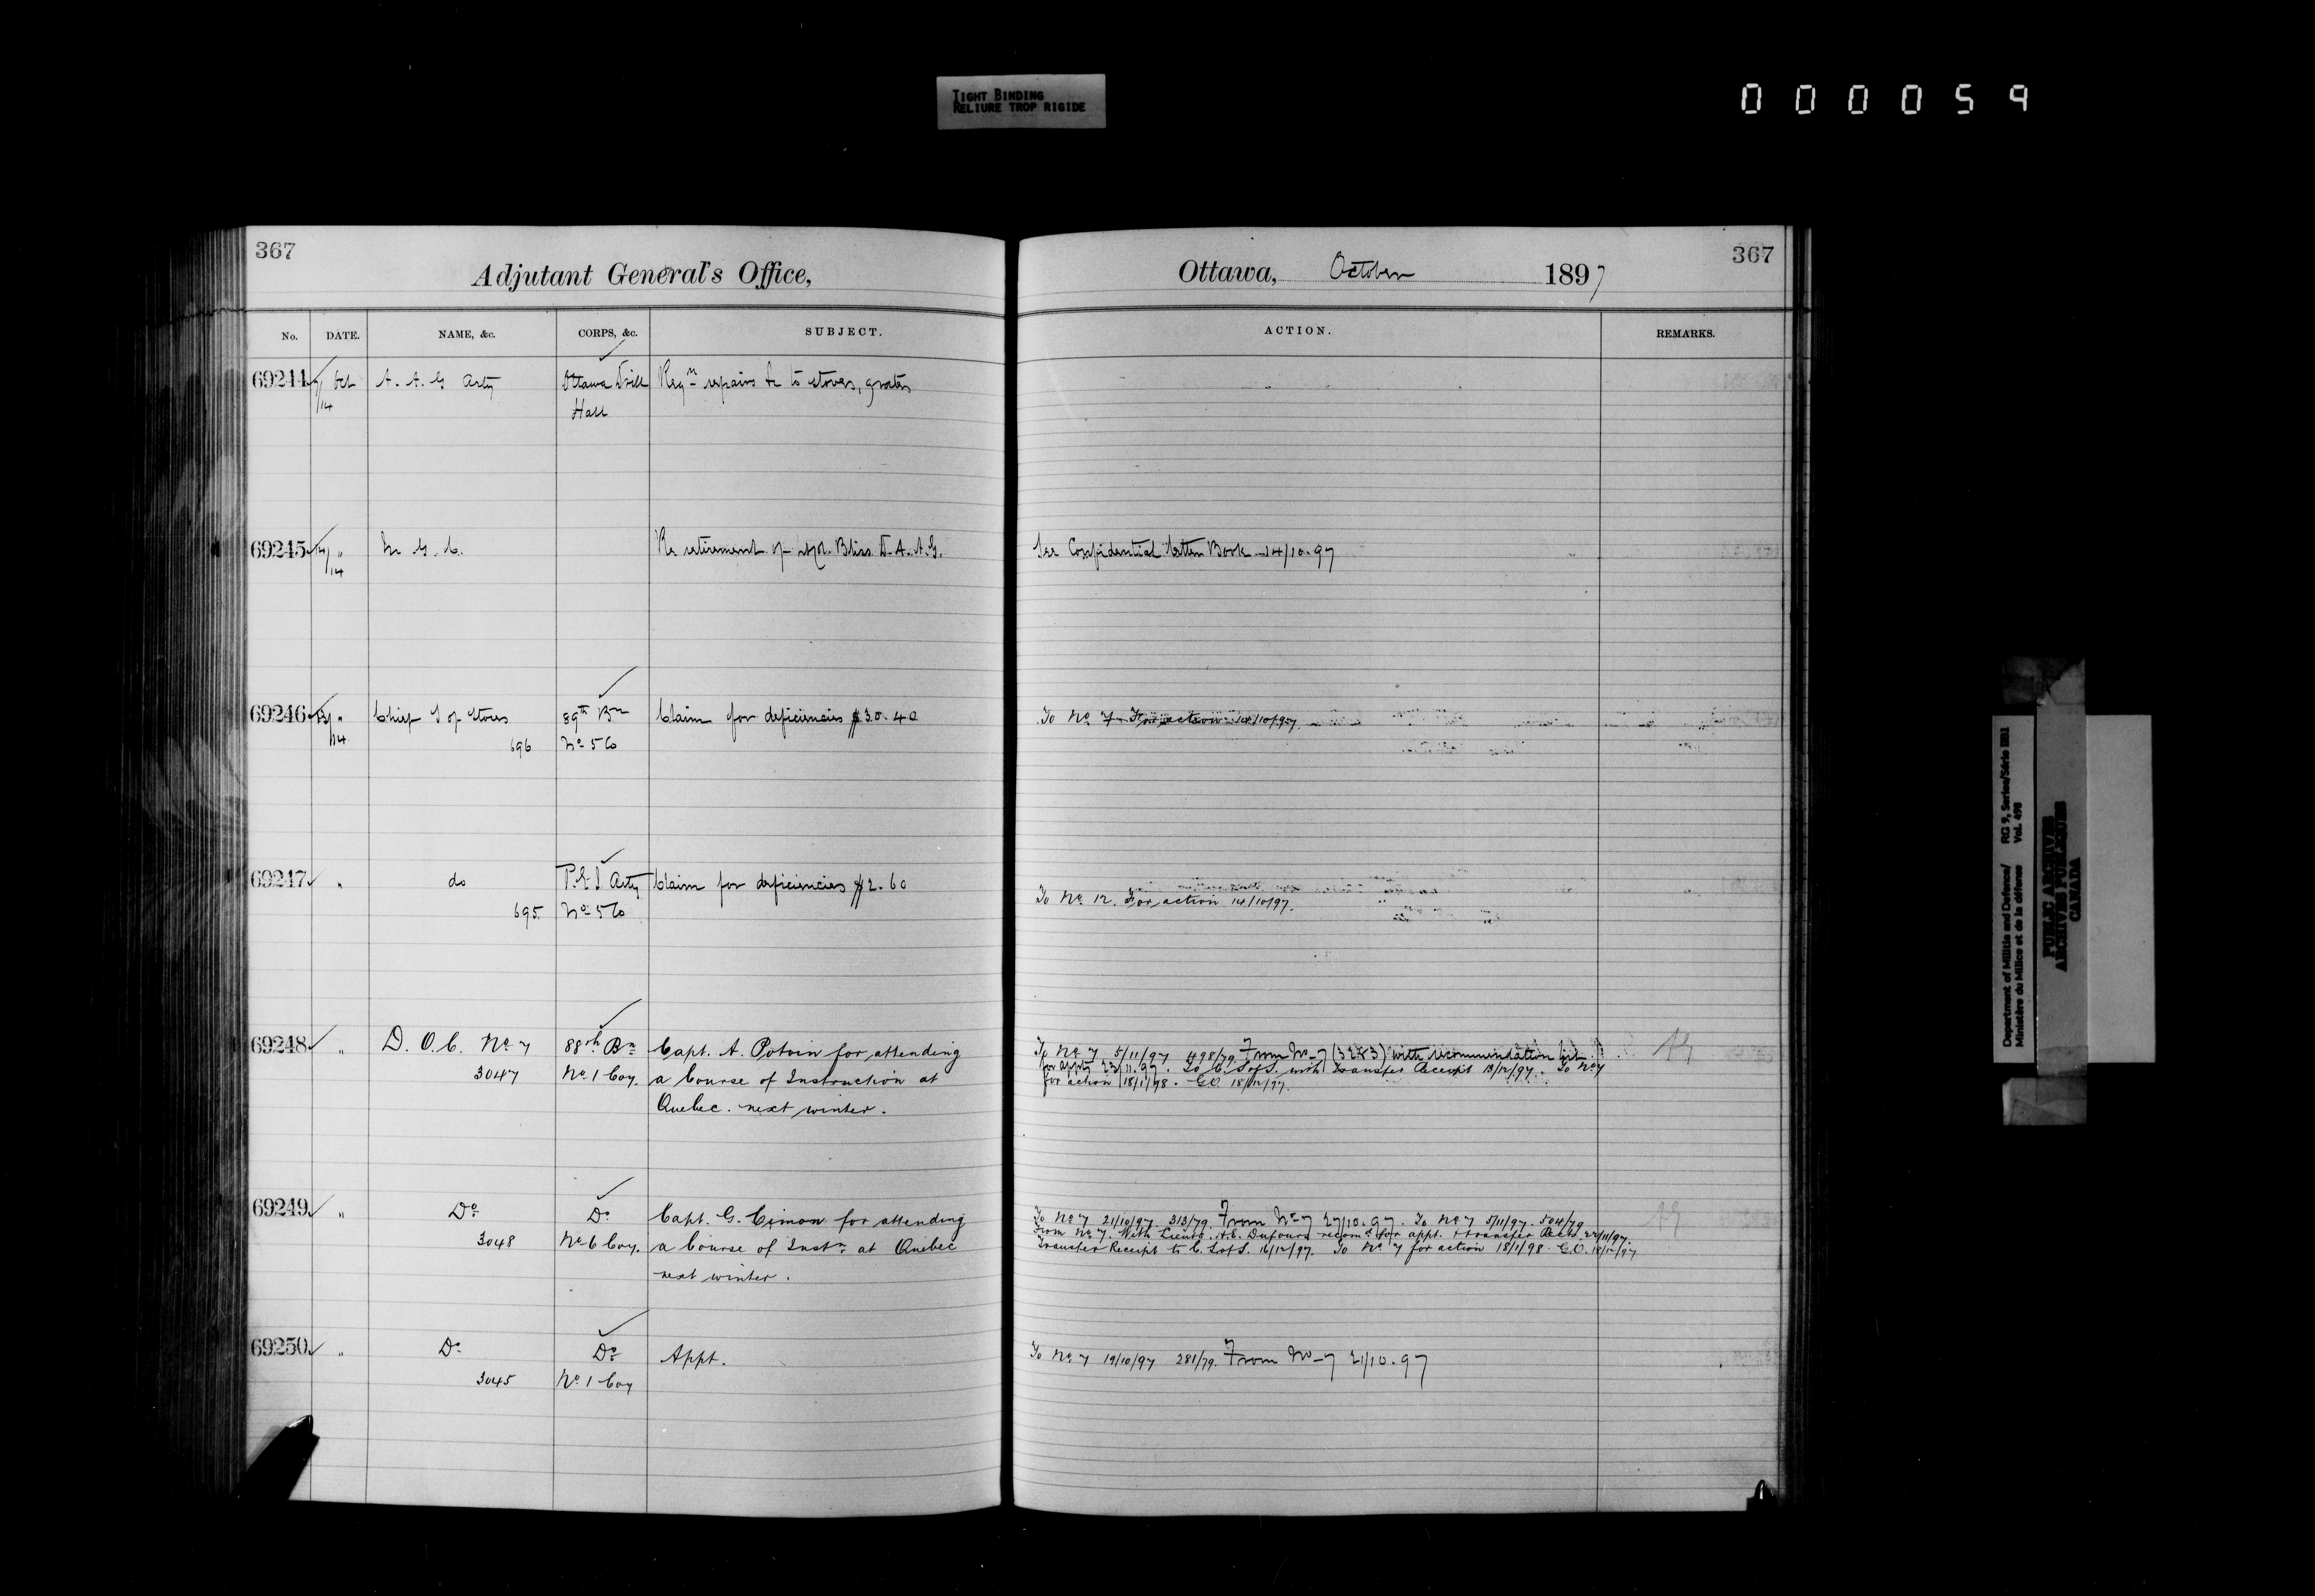 TIGHT BINDING
RELIURE TROP RIGIDE
000059
367
Adjutant General's Office,
No. DATE. NAME, &c. CORPS, &c. SUBJECT.
69244 Oct A. A. G Arty Ottawa Drill Reqn repairs &c to stoves, grates
/14 Hall
69245 14/ " Re retirement of Major Bliss D.A.A.G.
/14
69246 13/ " Chief S of Stores 89th Bn Claim for deficiencies $30.40
/14 696 No 5 Co
69247 " do P.E.I Arty Claim for deficiencies $2.60
695 No 5 Co
69248 " D. O. C. No 7 88th Bn Capt. A. Potvin for attending
3047 No 1 Coy. a Course of Instruction at
Quebec. next winter.
69249 " Do Do Capt. G. Cimon for attending
3048 No 6 Coy. a Course of Instn at Quebec
next winter.
69250 " Do Do Appt.
3045 No 1 Coy
367
Ottawa, October 1897
ACTION. REMARKS.
See Confidential Letter Book 14/10.97
To No 7 For action 14/10/97.
To No 12. For action 14/10/97.
To No 7 5/11/97 498/79. From No 7 (3283) with recommendation
for appt 23/11.97. To C. S of S. with Transfer Receipt 13/12/97. To No 7
for action 18/1/98. G.O. 18/12/97.
To No 7 21/10/97. 313/79. From No 7 27/10.97. To No 7 5/11/97. 504/79
From No 7. With Lieut. A.E. Dufours recomd for appt. & transfer Rects. 22/11/97.
Transfer Receipt to C. S of S. 16/12/97. To No 7 for action 18/1/98. G.O. 18/12/97
To No 7 19/10/97 281/79. From No 7 21/10.97
Department of Militia and Defence/ RG 9, Series/Série II B1
Ministère du Milice et de la défense Vol. 498
PUBLIC ARCHIVES
ARCHIVES PUBLIQUES
CANADA